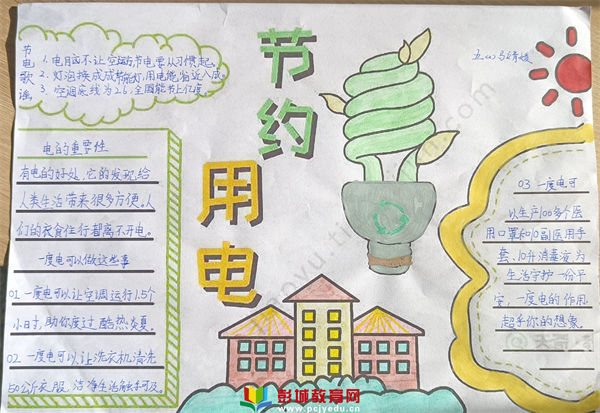 节约
用电
节电歌谣
1. 电脑不让空运,节电要从习惯起。
2. 灯泡换成成节能灯,用电能省近八成。
3. 空调底线为26,全国能节上亿度
电的重要性
有电的好处,它的发现,给
人类生活带来很多方便,人
们的衣食住行都离不开电。
一度电可以做这些事
01 一度电可以让空调运行1.5个
小时,助你度过酷热炎夏。
02 一度电可以让洗衣机清洗
50公斤衣服,洁净生活触手可及。
03 一度电可
以生产100多个医
用口罩和10副医用手
套、10升消毒液为
生活守护一份平
安,一度电的作用
超乎你的想象。
彭城教育网
www.pcjyedu.cn